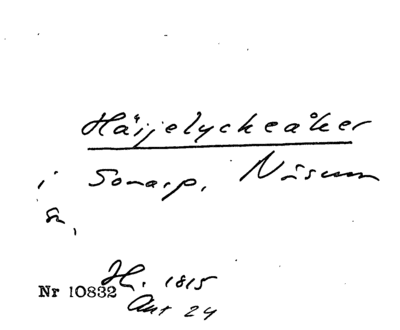 Häijelyckeåker
i Sonarp, Näsum
sn,
H. 1815
Nr 10832
Akt 24